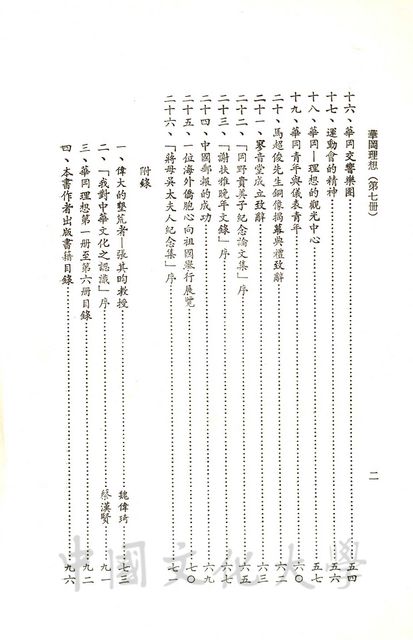 華岡理想（第七册）
二
十六、華岡交響樂團…五四
十七、運動會的精神…五六
十八、華岡—理想的觀光中心…五七
十九、華岡青年與儀表青年…六〇
二十、馬超俊先生銅像揭幕典禮致辭…六二
二十一、畧音堂成立致辭…六三
二十二、「岡野貴美子紀念論文集」序…六五
二十三、「謝扶雅晚年文錄」序…六七
二十四、中國郵報的成功…六九
二十五、一位海外僑胞心向祖國舉行展覽…七〇
二十六、「蔣母吳太夫人紀念集」序…七一
附錄
一、偉大的墾荒者—張其昀教授…魏偉琦…七三
二、「我對中華文化之認識」序…蔡漢賢…九一
三、華岡理想第一册至第六册目錄…九二
四、本書作者出版書籍目錄…九六
中國文化大學